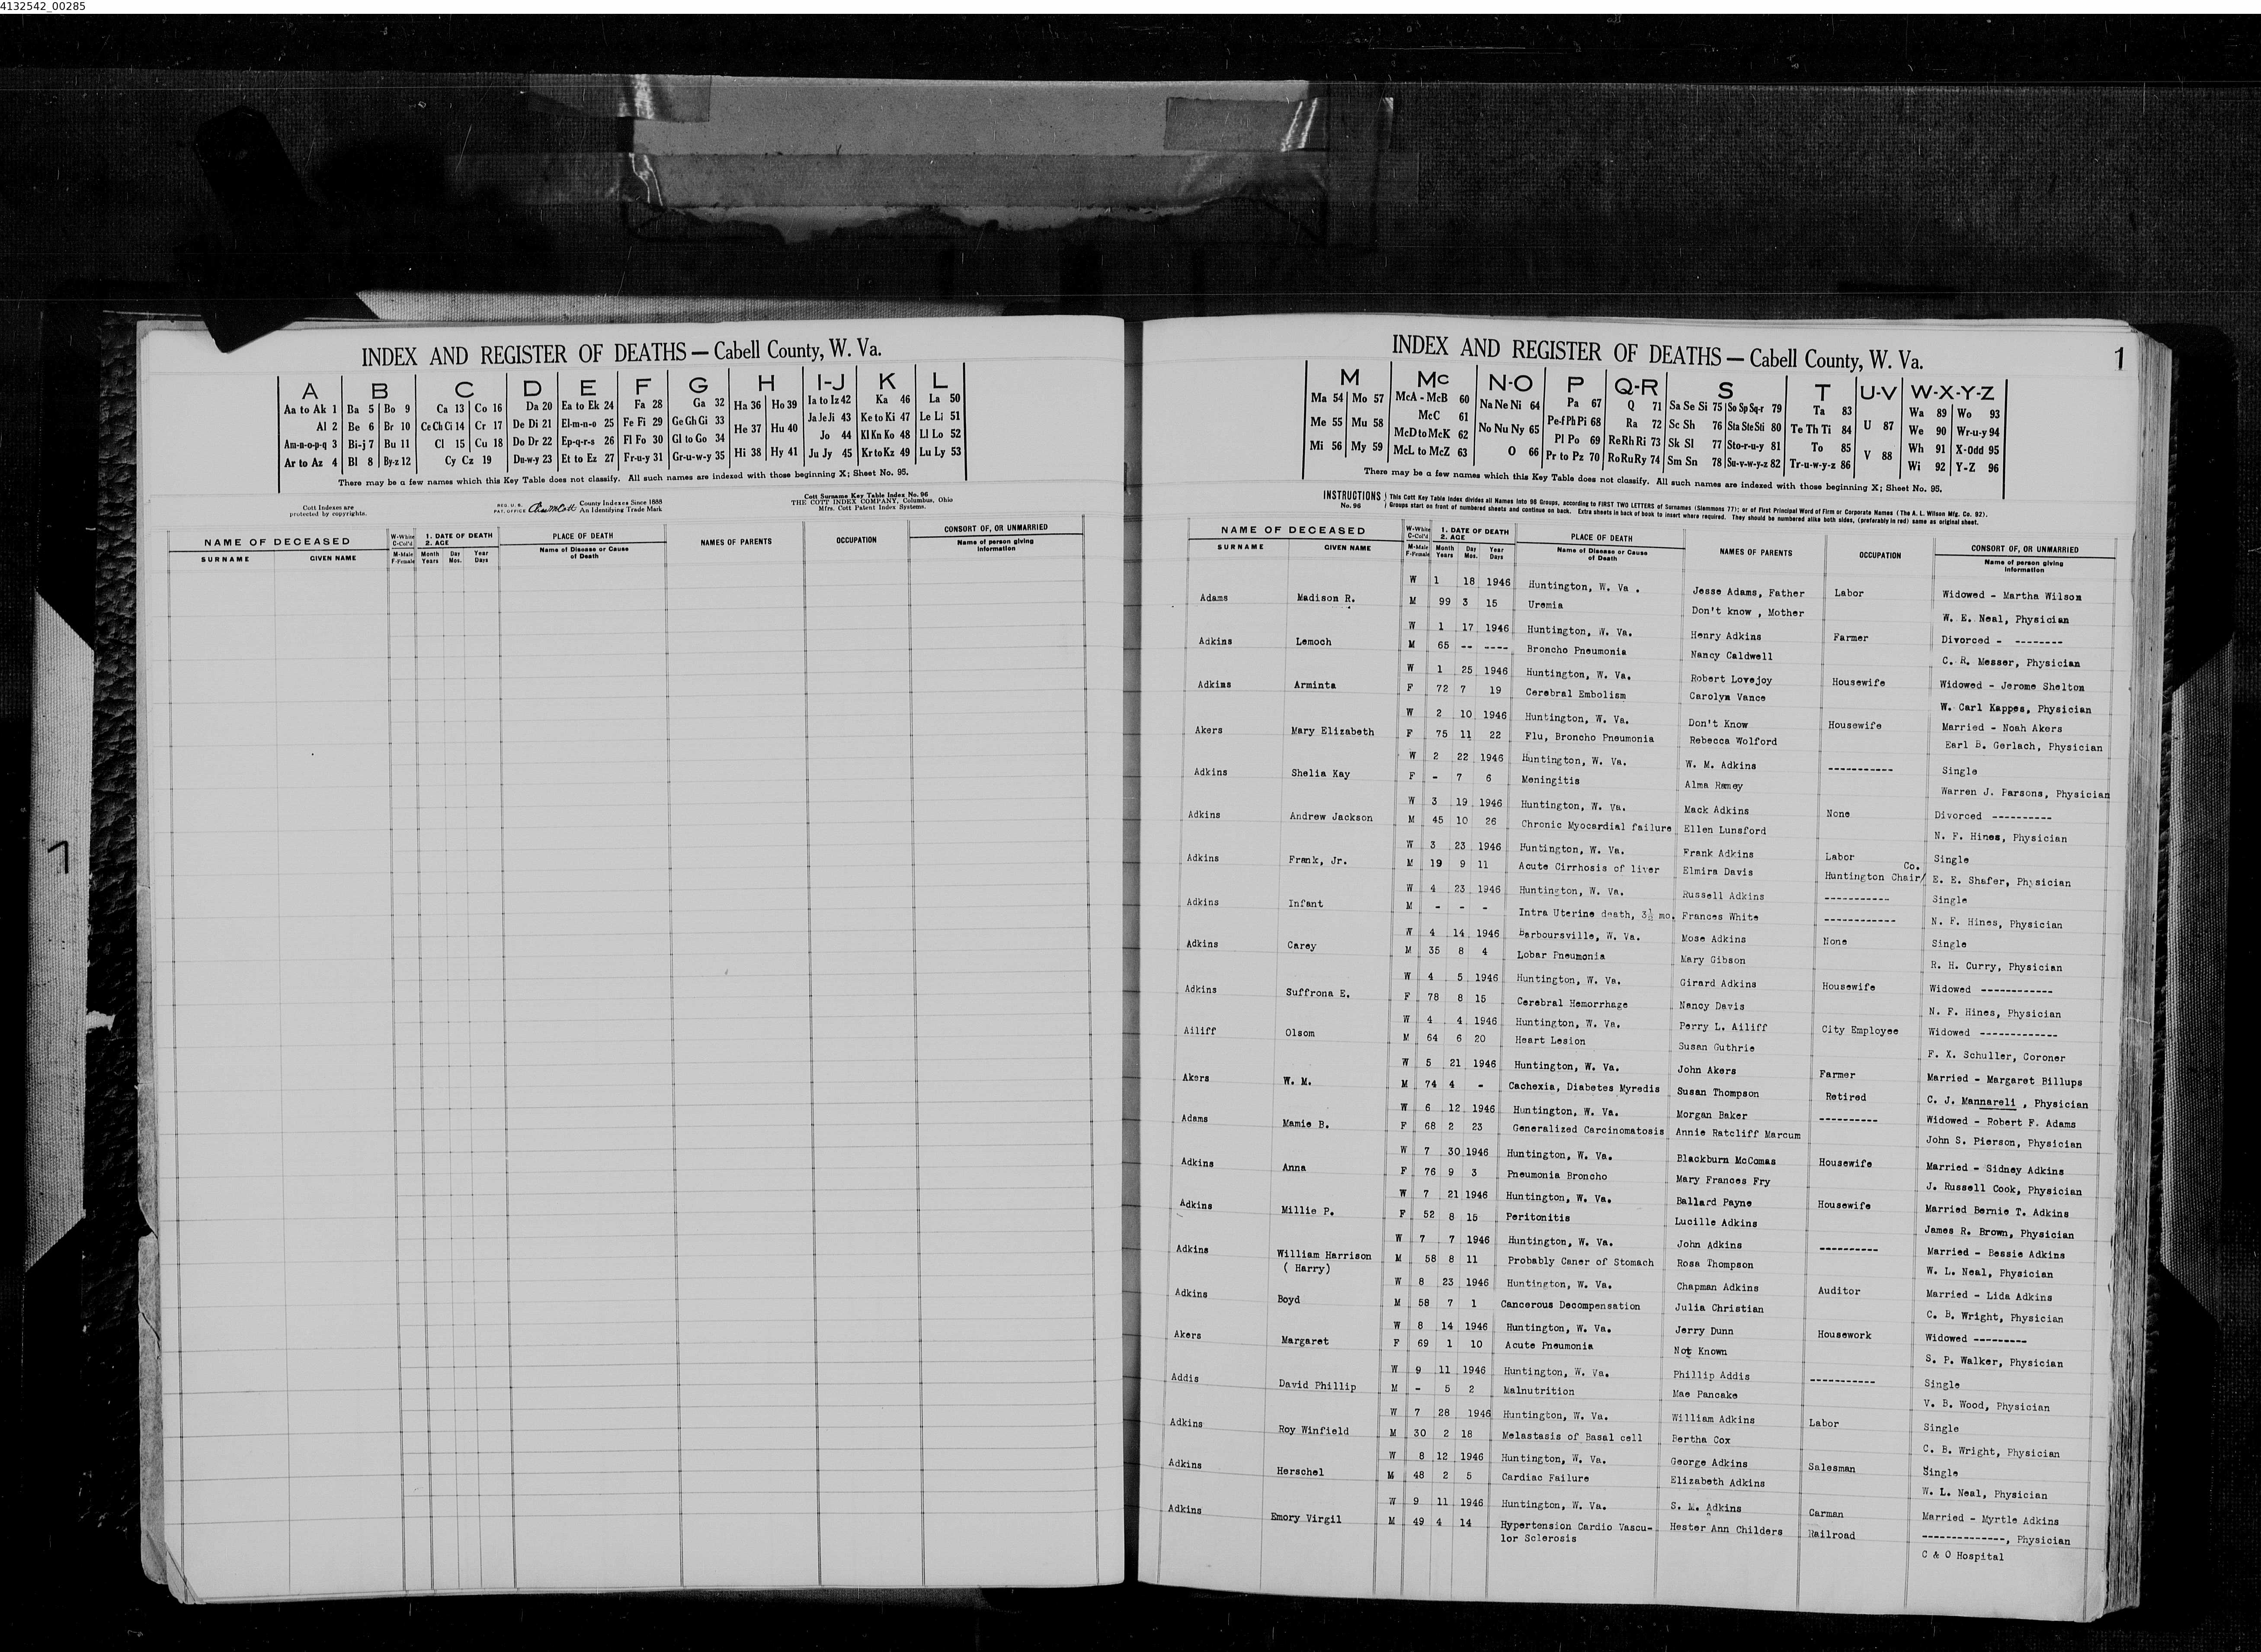 4132542_00285
INDEX AND REGISTER OF DEATHS — Cabell County, W. Va.
A B C D E F G H I-J K L
Aa to Ak 1 Ba 5 Bo 9 Ca 13 Co 16 Da 20 Ea to Ek 24 Fa 28 Ga 32 Ha 36 Ho 39 Ia to Iz 42 Ka 46 La 50
Al 2 Be 6 Br 10 Ce Ch Ci 14 Cr 17 De Di 21 El-m-n-o 25 Fe Fi 29 Ge Gh Gi 33 He 37 Hu 40 Ja Je Ji 43 Ke to Ki 47 Le Li 51
Am-n-o-p-q 3 Bi-j 7 Bu 11 Cl 15 Cu 18 Do Dr 22 Ep-q-r-s 26 Fl Fo 30 Gl to Go 34 Jo 44 Kl Kn Ko 48 Ll Lo 52
Ar to Az 4 Bl 8 By-z 12 Cy Cz 19 Du-w-y 23 Et to Ez 27 Fr-u-y 31 Gr-u-w-y 35 Hi 38 Hy 41 Ju Jy 45 Kr to Kz 49 Lu Ly 53
There may be a few names which this Key Table does not classify. All such names are indexed with those beginning X; Sheet No. 95.
Cott Indexes are
protected by copyrights.
REG. U. S.
PAT. OFFICE
County Indexes Since 1888
An Identifying Trade Mark
Cott Surname Key Table Index No. 96
THE COTT INDEX COMPANY, Columbus, Ohio
Mfrs. Cott Patent Index Systems.
NAME OF DECEASED
SURNAME GIVEN NAME
W-White
C-Col'd
M-Male
F-Female
1. DATE OF DEATH
2. AGE
Month Day Year
Years Mos. Days
PLACE OF DEATH
Name of Disease or Cause
of Death
NAMES OF PARENTS
OCCUPATION
CONSORT OF, OR UNMARRIED
Name of person giving
information
INDEX AND REGISTER OF DEATHS — Cabell County, W. Va.
1
M Mc N-O P Q-R S T U-V W-X-Y-Z
Ma 54 Mo 57 McA - McB 60 Na Ne Ni 64 Pa 67 Q 71 Sa Se Si 75 So Sp Sq-r 79 Ta 83 Wa 89 Wo 93
Me 55 Mu 58 McC 61 No Nu Ny 65 Pe-f Ph Pi 68 Ra 72 Sc Sh 76 Sta Ste Sti 80 Te Th Ti 84 U 87 We 90 Wr-u-y 94
McD to McK 62 Pl Po 69 Re Rh Ri 73 Sk Sl 77 Sto-r-u-y 81 To 85 Wh 91 X-Odd 95
Mi 56 My 59 McL to McZ 63 O 66 Pr to Pz 70 Ro Ru Ry 74 Sm Sn 78 Su-v-w-y-z 82 Tr-u-w-y-z 86 V 88 Wi 92 Y-Z 96
There may be a few names which this Key Table does not classify. All such names are indexed with those beginning X; Sheet No. 95.
INSTRUCTIONS
No. 96
This Cott Key Table Index divides all Names into 96 Groups, according to FIRST TWO LETTERS of Surnames (Slemmons 77); or of First Principal Word of Firm or Corporate Names (The A. L. Wilson Mfg. Co. 92).
Groups start on front of numbered sheets and continue on back. Extra sheets in back of book to insert where required. They should be numbered alike both sides, (preferably in red) same as original sheet.
NAME OF DECEASED
SURNAME GIVEN NAME
W-White
C-Col'd
M-Male
F-Female
1. DATE OF DEATH
2. AGE
Month Day Year
Years Mos. Days
PLACE OF DEATH
Name of Disease or Cause
of Death
NAMES OF PARENTS
OCCUPATION
CONSORT OF, OR UNMARRIED
Name of person giving
information
W 1 18 1946 Huntington, W. Va . Jesse Adams, Father Labor Widowed - Martha Wilson
Adams Madison R. M 99 3 15 Uremia Don't know , Mother W. E. Neal, Physician
W 1 17 1946 Huntington, W. Va. Henry Adkins Farmer Divorced - --------
Adkins Lemoch M 65 -- ---- Broncho Pneumonia Nancy Caldwell C. R. Messer, Physician
W 1 25 1946 Huntington, W. Va. Robert Lovejoy Housewife Widowed - Jerome Shelton
Adkins Arminta F 72 7 19 Cerebral Embolism Carolyn Vance W. Carl Kappes, Physician
W 2 10 1946 Huntington, W. Va. Don't Know Housewife Married - Noah Akers
Akers Mary Elizabeth F 75 11 22 Flu, Broncho Pneumonia Rebecca Wolford Earl B. Gerlach, Physician
W 2 22 1946 Huntington, W. Va. W. M. Adkins ----------- Single
Adkins Shelia Kay F - 7 6 Meningitis Alma Ramey Warren J. Parsons, Physician
W 3 19 1946 Huntington, W. Va. Mack Adkins None Divorced ----------
Adkins Andrew Jackson M 45 10 26 Chronic Myocardial failure Ellen Lunsford N. F. Hines, Physician
W 3 23 1946 Huntington, W. Va. Frank Adkins Labor Co. Single
Adkins Frank, Jr. M 19 9 11 Acute Cirrhosis of liver Elmira Davis Huntington Chair/ E. E. Shafer, Physician
W 4 23 1946 Huntington, W. Va. Russell Adkins ----------- Single
Adkins Infant M - - - Intra Uterine death, 3½ mo. Frances White ------------ N. F. Hines, Physician
W 4 14 1946 Barboursville, W. Va. Mose Adkins None Single
Adkins Carey M 35 8 4 Lobar Pneumonia Mary Gibson R. H. Curry, Physician
W 4 5 1946 Huntington, W. Va. Girard Adkins Housewife Widowed ------------
Adkins Suffrona E. F 78 8 15 Cerebral Hemorrhage Nancy Davis N. F. Hines, Physician
W 4 4 1946 Huntington, W. Va. Perry L. Ailiff City Employee Widowed -------------
Ailiff Olsom M 64 6 20 Heart Lesion Susan Guthrie F. X. Schuller, Coroner
W 5 21 1946 Huntington, W. Va. John Akers Farmer Married - Margaret Billups
Akers W. M. M 74 4 - Cachexia, Diabetes Myredis Susan Thompson Retired C. J. Mannareli , Physician
W 6 12 1946 Huntington, W. Va. Morgan Baker ---------- Widowed - Robert F. Adams
Adams Mamie B. F 68 2 23 Generalized Carcinomatosis Annie Ratcliff Marcum John S. Pierson, Physician
W 7 30 1946 Huntington, W. Va. Blackburn McComas Housewife Married - Sidney Adkins
Adkins Anna F 76 9 3 Pneumonia Broncho Mary Frances Fry J. Russell Cook, Physician
W 7 21 1946 Huntington, W. Va. Ballard Payne Housewife Married Bernie T. Adkins
Adkins Millie P. F 52 8 15 Peritonitis Lucille Adkins James R. Brown, Physician
W 7 7 1946 Huntington, W. Va. John Adkins ---------- Married - Bessie Adkins
Adkins William Harrison M 58 8 11 Probably Caner of Stomach Rosa Thompson W. L. Neal, Physician
( Harry)
W 8 23 1946 Huntington, W. Va. Chapman Adkins Auditor Married - Lida Adkins
Adkins Boyd M 58 7 1 Cancerous Decompensation Julia Christian C. B. Wright, Physician
W 8 14 1946 Huntington, W. Va. Jerry Dunn Housework Widowed ---------
Akers Margaret F 69 1 10 Acute Pneumonia Not Known S. P. Walker, Physician
W 9 11 1946 Huntington, W. Va. Phillip Addis ----------- Single
Addis David Phillip M - 5 2 Malnutrition Mae Pancake V. B. Wood, Physician
W 7 28 1946 Huntington, W. Va. William Adkins Labor Single
Adkins Roy Winfield M 30 2 18 Melastasis of Basal cell Bertha Cox C. B. Wright, Physician
W 8 12 1946 Huntington, W. Va. George Adkins Salesman Single
Adkins Herschel M 48 2 5 Cardiac Failure Elizabeth Adkins W. L. Neal, Physician
W 9 11 1946 Huntington, W. Va. S. M. Adkins Carman Married - Myrtle Adkins
Adkins Emory Virgil M 49 4 14 Hypertension Cardio Vascu- Hester Ann Childers Railroad --------------, Physician
lor Sclerosis C & O Hospital